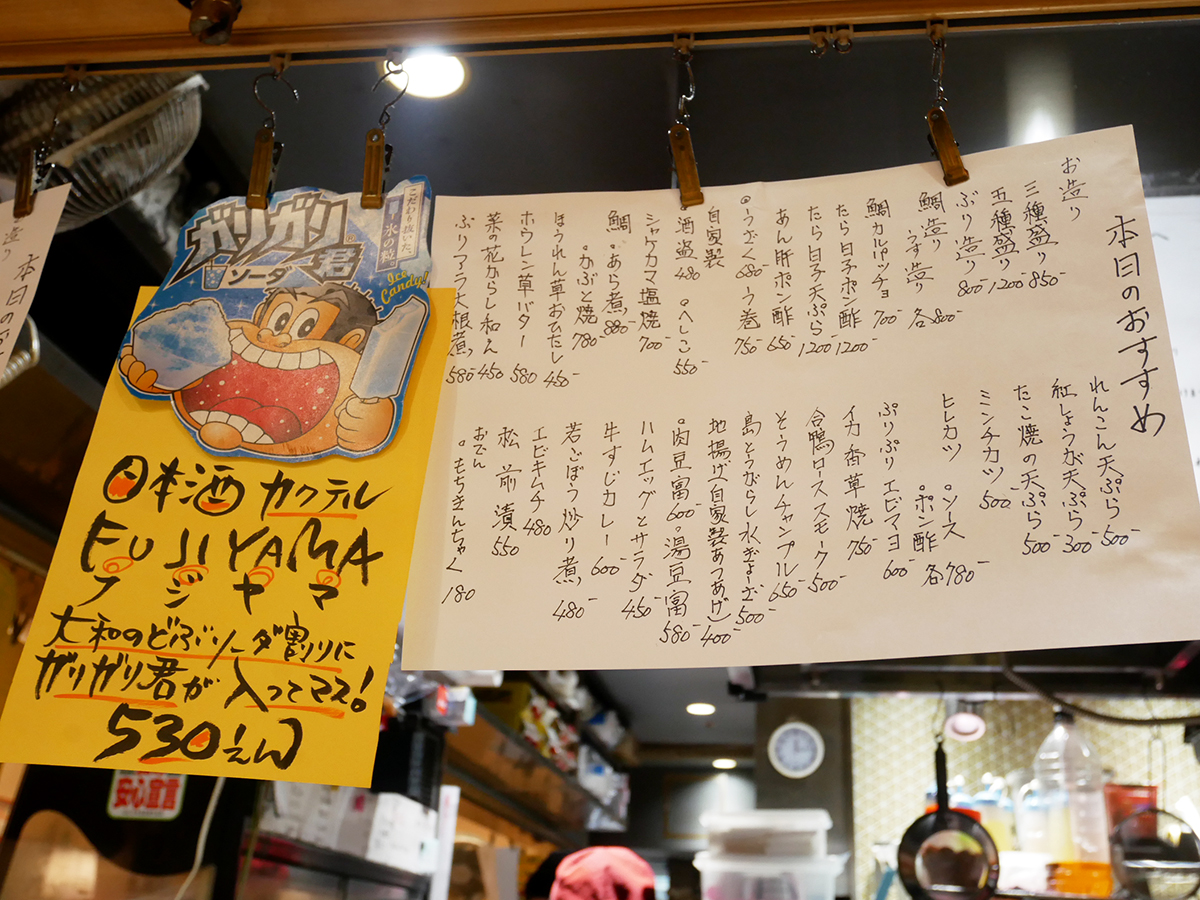 本日のおすすめ
お造り
三種盛り 850-
五種盛り 1200-
ぶり造り 800-
鯛造り
うす造り 各800-
鯛カルパッチョ 700-
たら白子ポン酢 1200-
たら白子天ぷら 1200-
あん肝ポン酢 650-
うざく 680- う巻 750-
自家製
酒盗 480 へしこ 550-
シャケカマ塩焼 700-
鯛 あら煮 880-
かぶと焼 780-
ほうれん草おひたし 450-
ホウレン草バター 580
菜の花からし和え 450
ぶりアラ大根煮 580-
れんこん天ぷら 500-
紅しょうが天ぷら 300-
たこ焼の天ぷら 500-
ミンチカツ 500-
ヒレカツ
ソース
ポン酢 各780-
ぷりぷりエビマヨ 600-
イカ香草焼 750-
合鴨ロススモーク 500-
そうめんチャンプル 650-
島とうがらし水ぎょーざ 500-
地揚げ(自家製あつあげ) 400-
肉豆富 600- 湯豆富 580-
ハムエッグとサラダ 450-
牛すじカレー 600-
若ごぼう炒り煮 480-
エビキムチ 480
松前漬 550
おでん
もちきんちゃく 180
こだわり抜いた、
ガリガリ君
ソーダ
Ice Candy!
日本酒カクテル
FUJIYAMA
フジヤマ
大和のどぶソーダ割りに
ガリガリ君が入ってマス!
530えん
安心宣言
造り
本日のお